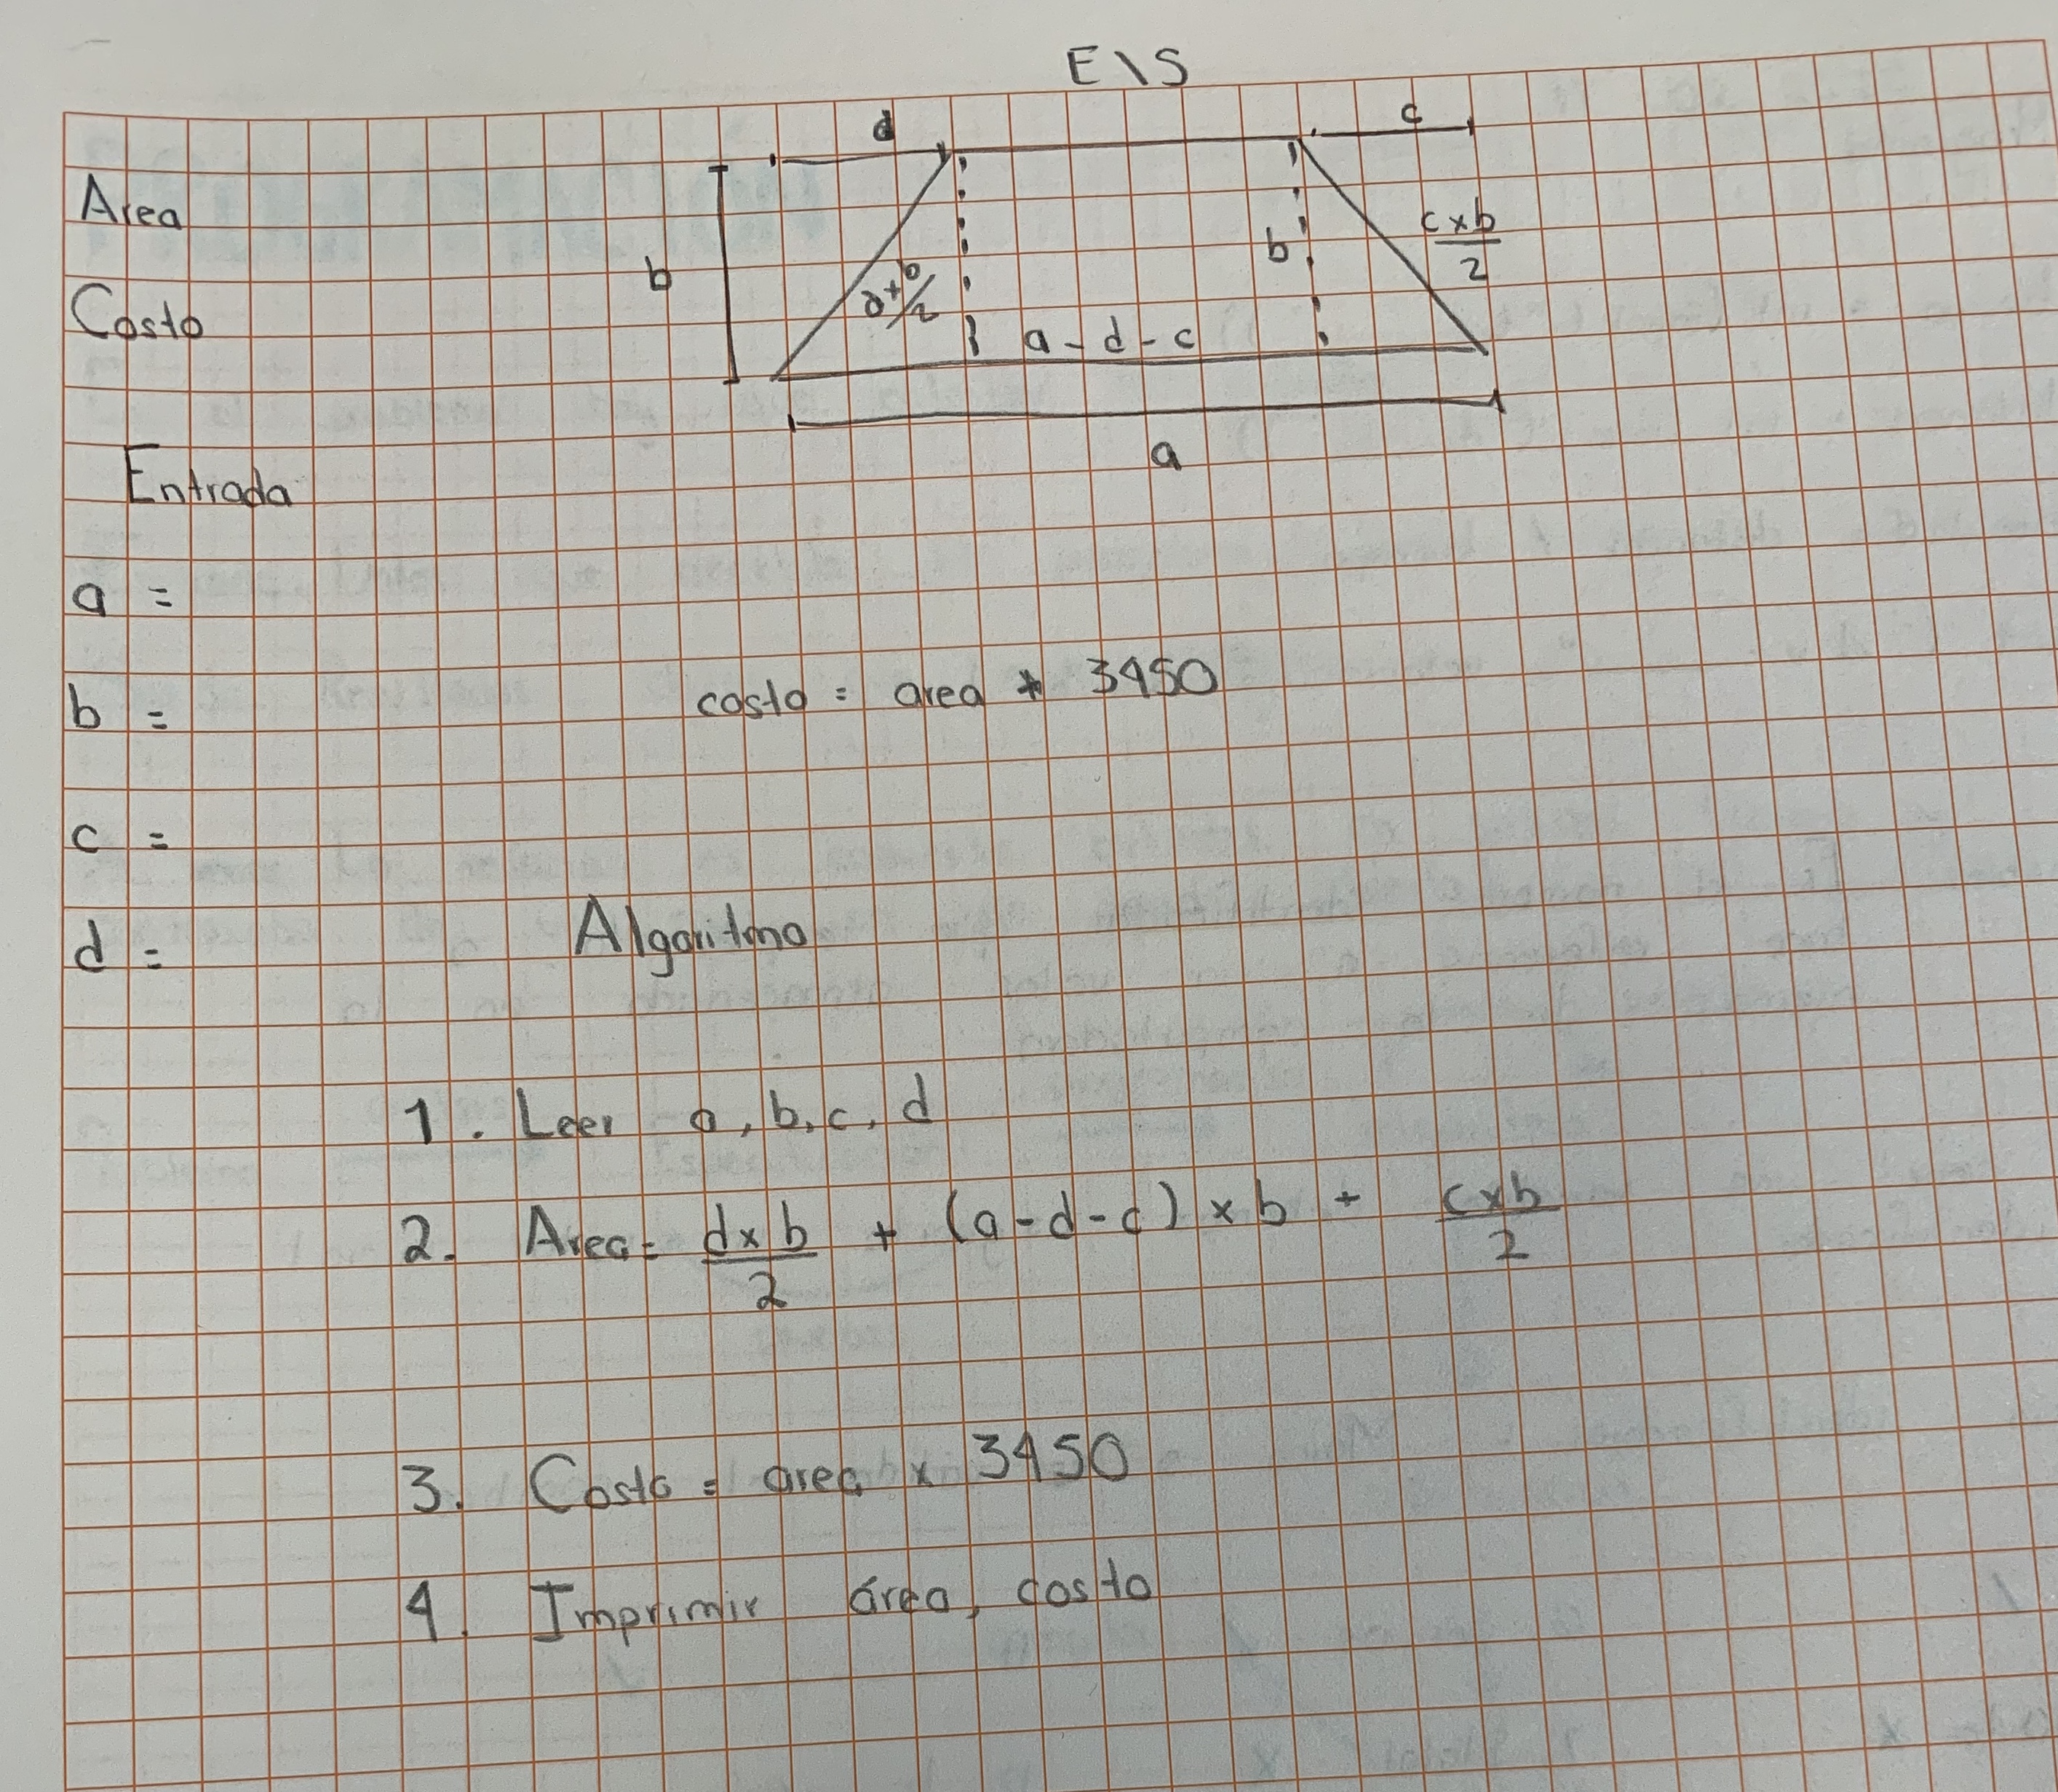 E\S
d c
Area
b b c x b
2
Costo
a - d - c
a
Entrada
a =
b =
costo = area * 3450
c =
d =
Algoritmo
1. Leer a, b, c, d
2. Area = d x b / 2 + (a - d - c) x b + c x b / 2
3. Costo = area x 3450
4. Imprimir área, costo